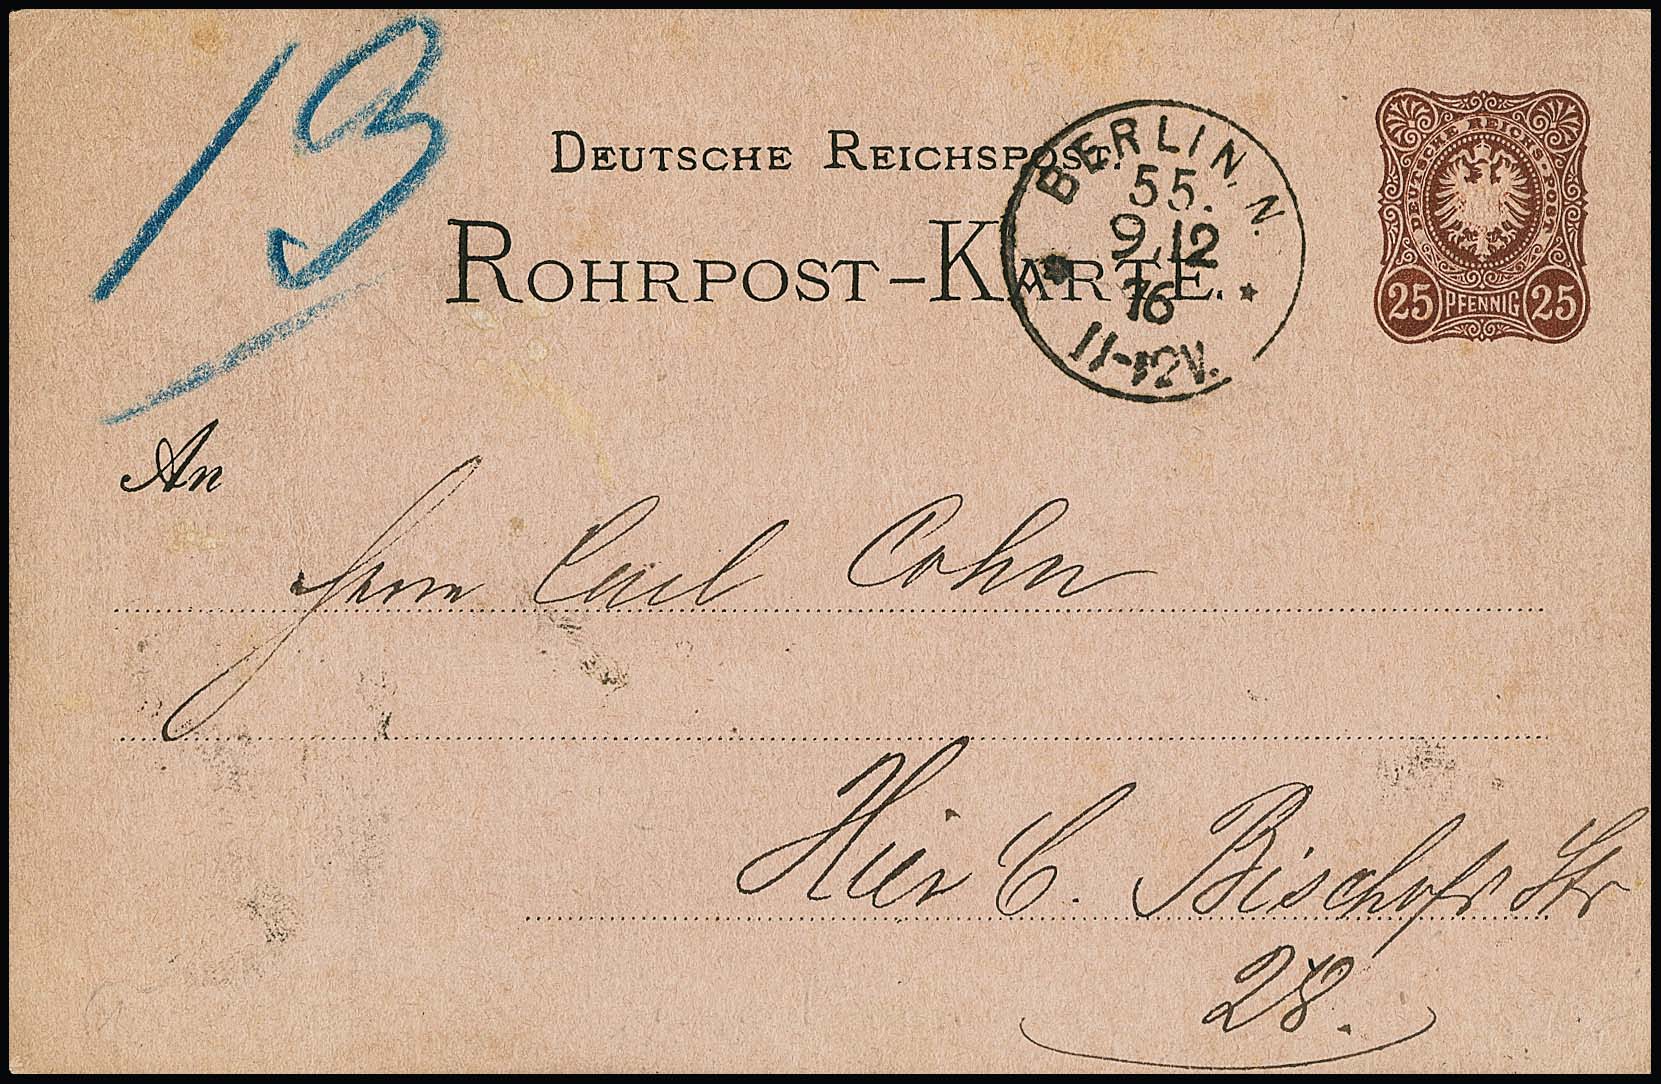 13
DEUTSCHE REICHSPOST.
ROHRPOST-KARTE.
BERLIN. N.
55.
9.12
76
11-12V.
DEUTSCHE REICHS-POST
25 PFENNIG 25
An
Herrn Carl Cohn
Hier C. Bischofs Str
28.